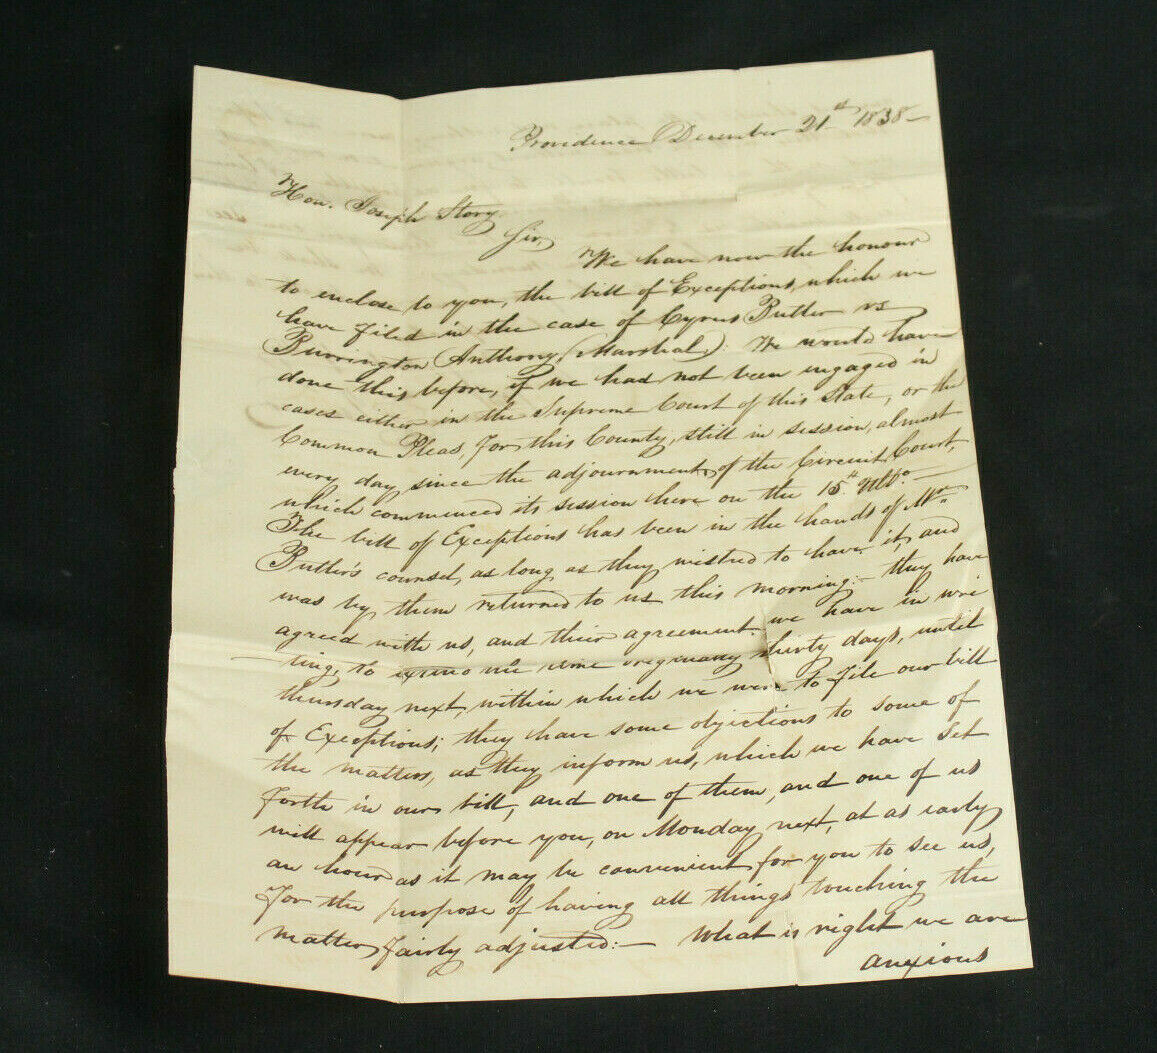 Providence December 21st 1838 –
Hon. Joseph Story
Sir,
We have now the honour
to enclose to you, the bill of Exceptions, which we
have filed in the case of Cyrus Butler vs
Burrington Anthony, (Marshal.) We would have
done this before, if we had not been engaged in
cases either in the Supreme Court of this State, or the
Common Pleas, for this County, still in session, almost
every day since the adjournment, of the Circuit Court,
which commenced its session here on the 15th Ulto –
The bill of Exceptions has been in the hands of Mr
Butler's counsel, as long as they wished to have it, and
was by them returned to us this morning:– they have
agreed with us, and their agreement we have in wri
ting, to the time originally thirty days, until
thursday next, within which we were to file our bill
of Exceptions; they have some objections to some of
the matters, as they inform us, which we have set
forth in our bill, and one of them, and one of us
will appear before you, on Monday next, at as early
an hour as it may be convenient for you to see us,
for the purpose of having all things touching the
matter, fairly adjusted:– What is right we are
anxious